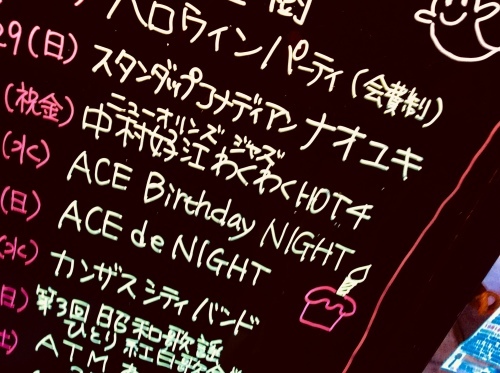 ハロウィンパーティ(会費制)
29(日) スタンダップコメディアン ナオユキ
ニューオリンズ ジャズ
(祝金) 中村好江わくわくHOT4
(水) ACE Birthday NIGHT
(日) ACE de NIGHT
(水) カンザスシティバンド
日) 第3回 昭和歌謡
ひとり紅白歌合
土) ATM